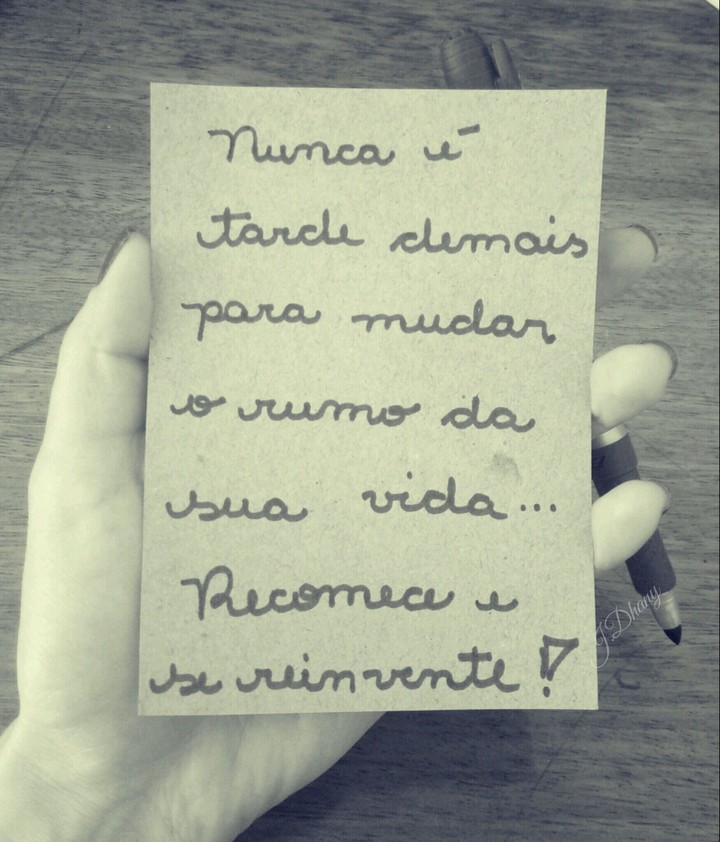 Nunca é
tarde demais
para mudar
o rumo da
sua vida...
Recomece e
se reinvente!
J.Dhany